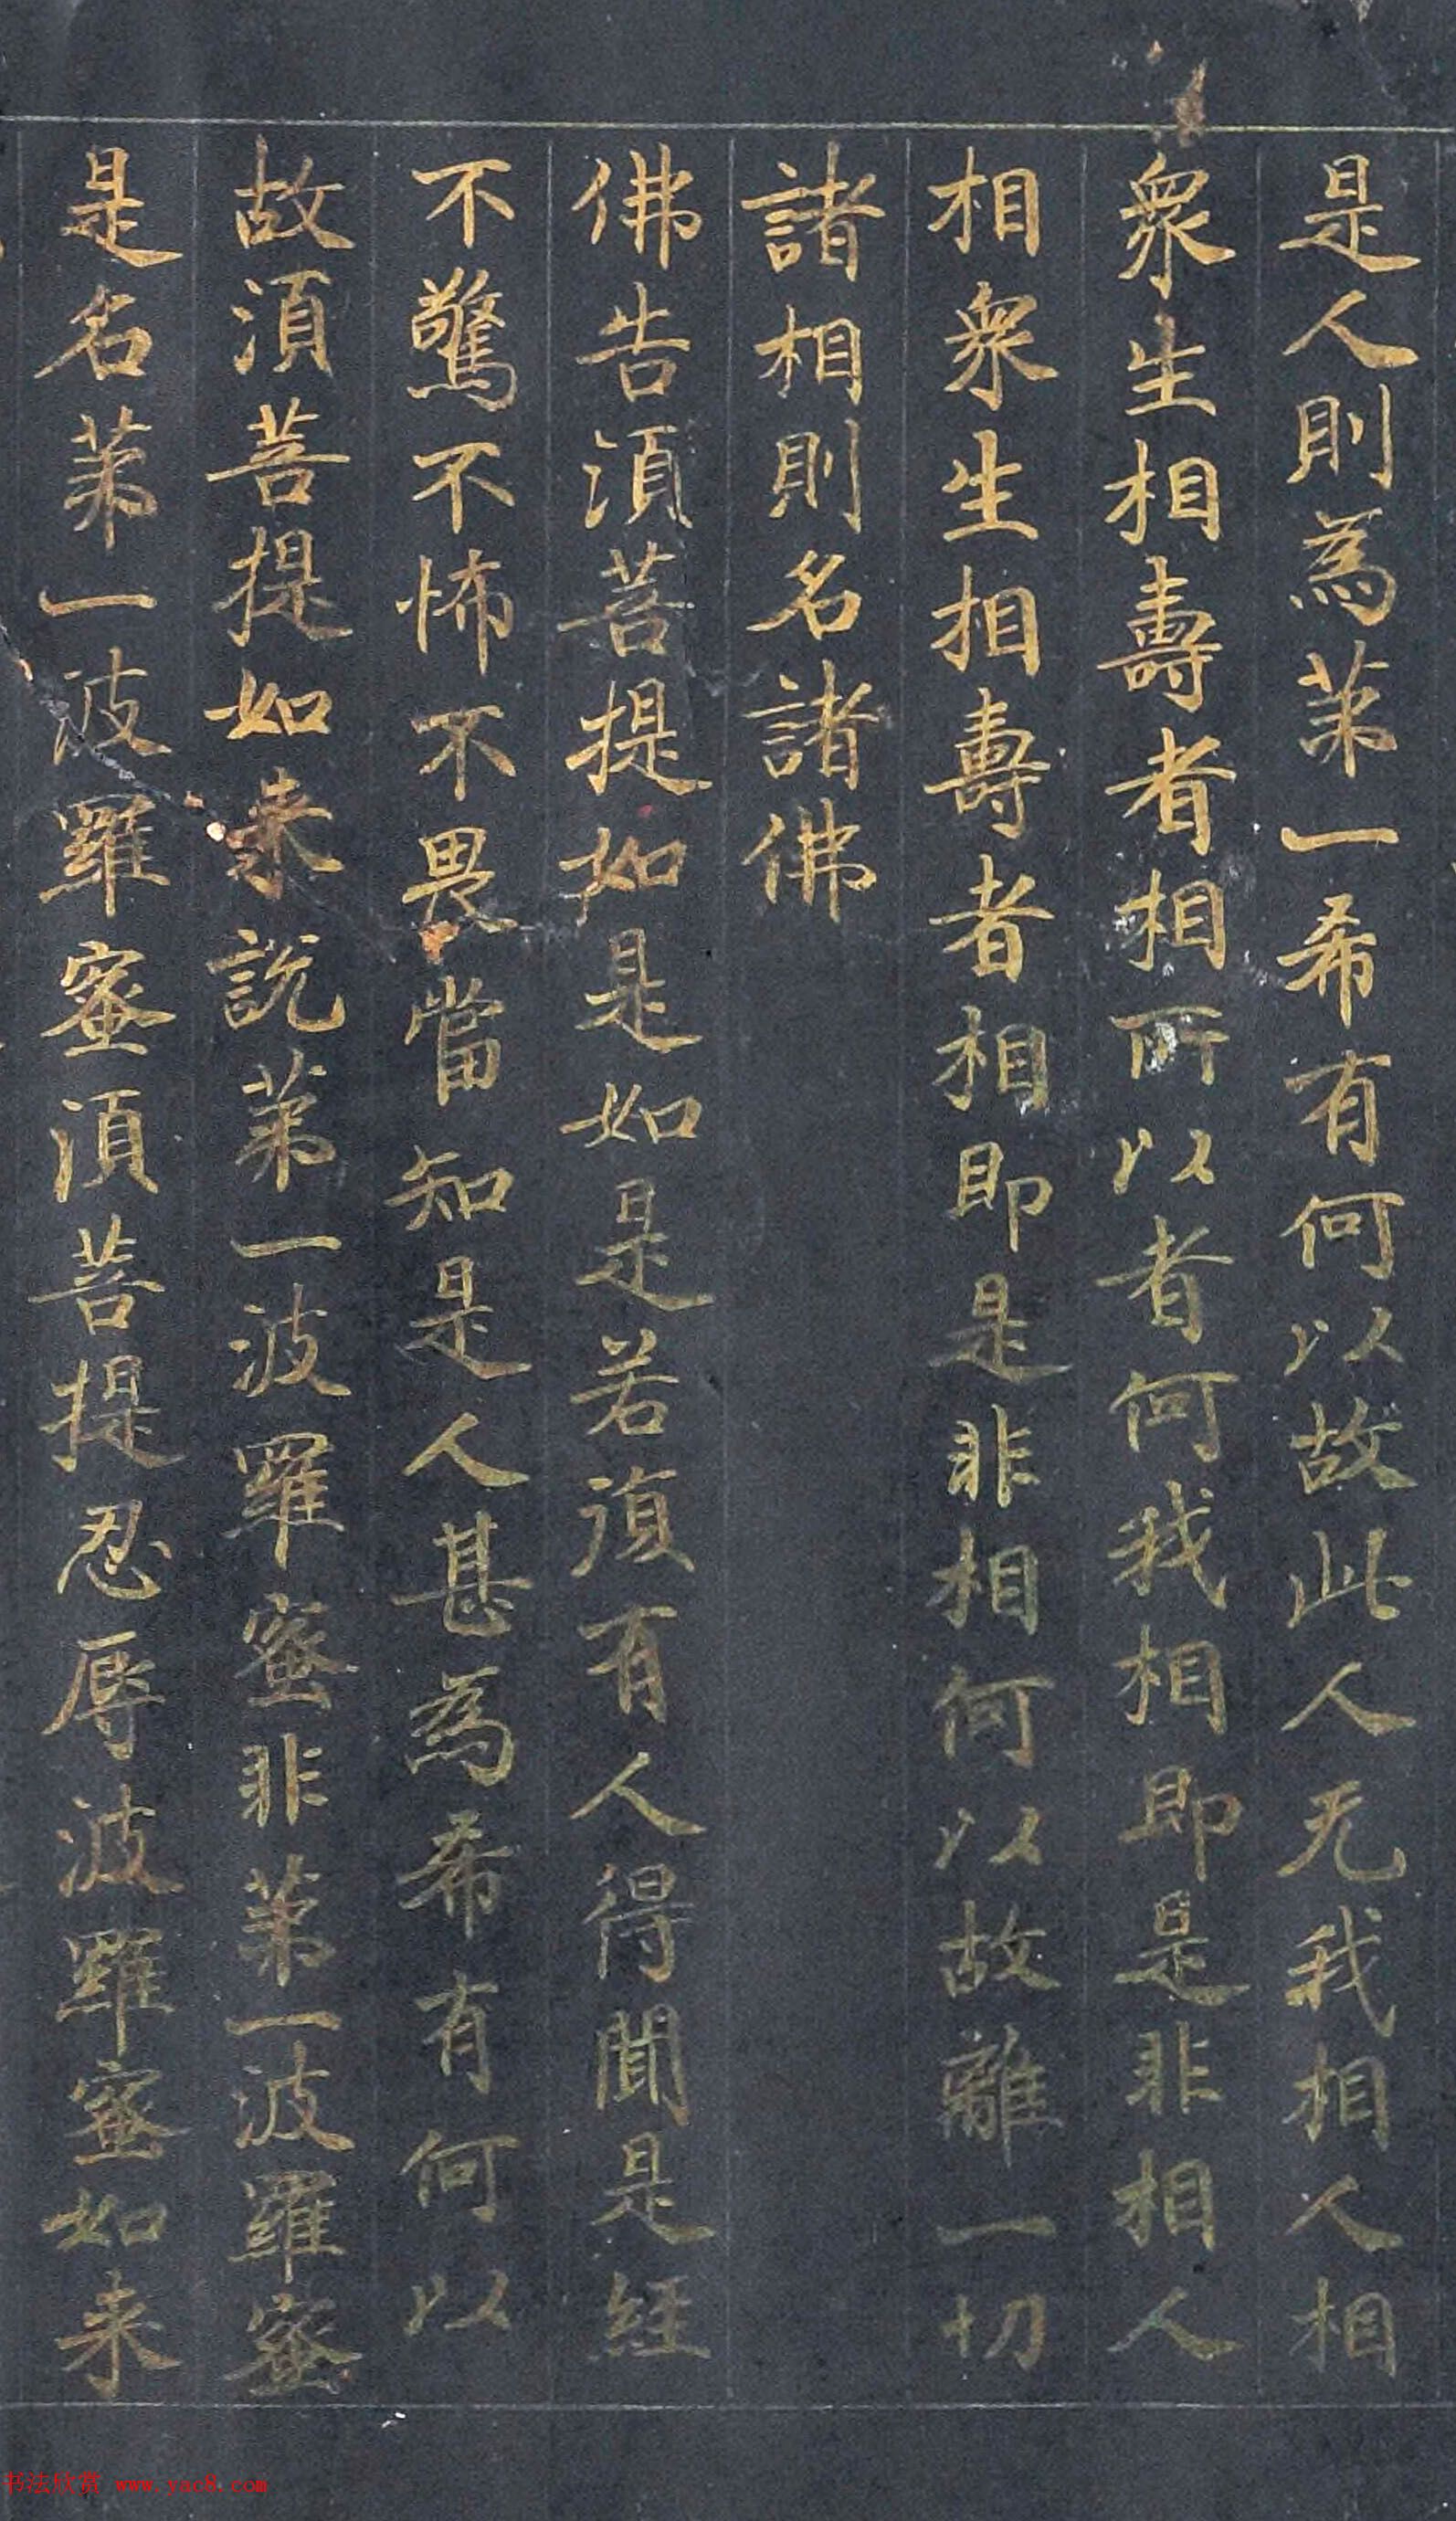 是人則為苐一希有何以故此人无我相人相
衆生相壽者相所以者何我相即是非相人
相衆生相壽者相即是非相何以故離一切
諸相則名諸佛
佛告湏菩提如是如是若湏有人得聞是經
不驚不怖不畏當知是人甚為希有何以
故湏菩提如来說苐一波羅蜜非苐一波羅蜜
是名苐一波羅蜜湏菩提忍辱波羅蜜如来
书法欣赏 www.yac8.com